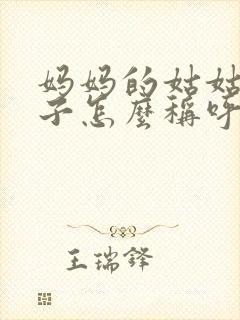 妈妈的姑姑
子怎麼稱呼
王瑞鋒